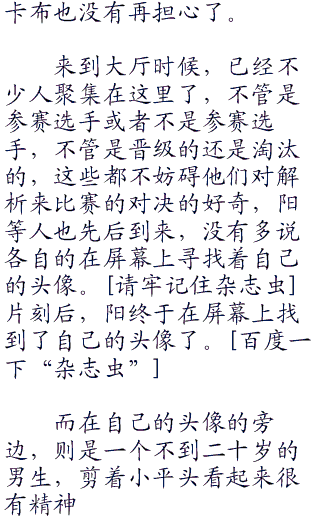 卡布也没有再担心了。
来到大厅时候，已经不
少人聚集在这里了，不管是
参赛选手或者不是参赛选
手，不管是晋级的还是淘汰
的，这些都不妨碍他们对解
析来比赛的对决的好奇，阳
等人也先后到来，没有多说
各自的在屏幕上寻找着自己
的头像。[请牢记住杂志虫]
片刻后，阳终于在屏幕上找
到了自己的头像了。[百度一
下“杂志虫”]
而在自己的头像的旁
边，则是一个不到二十岁的
男生，剪着小平头看起来很
有精神